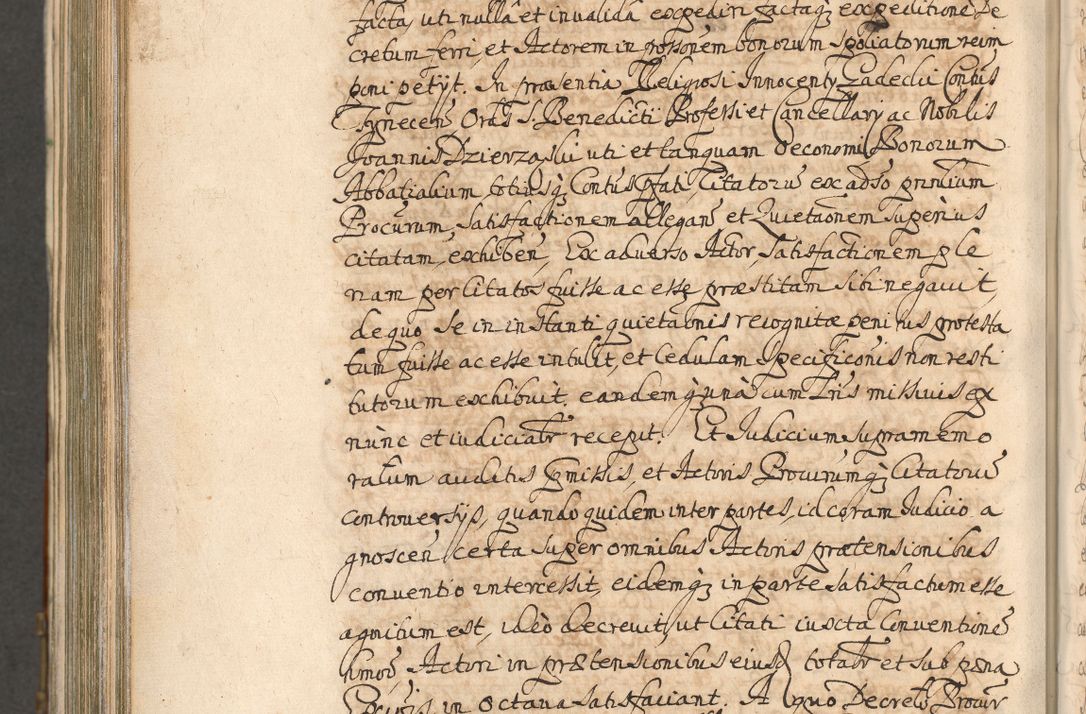 facta, uti nulla et invalida expediri factaq; expeditione De
cretum ferri, et Actorem in possonem bonorum spoliatorum reim
poni petijt. In praesentia Religiosi Innocentij Gadeclii Contus
Tynecen Ord S. Benedicti Professi et Cancellarij ac Nobilis
Joannis Dzierzaslii uti et tanquam Oeconomi Bonorum
Abbatialium totiusq; Contus pfati, Citatoru ex adso
Procurum, Satisfactionem allegan et Quietaonem superius
citatam, exhiben, Ex adverso Actor, Satisfactionem ple
nam per Citatos fuisse ac esse praestitam sibi negavit,
de quo se in instanti quietaonis recognitae penitus protesta
tum fuisse ac esse intulit, et Cedulam specificonis non resti
tutorum exhibuit. eandemq; unà cum Lris missivis ex
nunc et iudicialr recepit. Et Judicium supramemo
ratum auditis pmissis, et Actoris Procurumq; Citatoru
controversijs, quandoquidem inter partes, id coram Judicio a
gnoscen certa super omnibus Actoris praetensionibus
conventio intercessit, eidemq; in parte satisfactum esse
agnitum est, ideò decrevit, ut Citati iuxta Conventione
Actori in praetensionibus eiusd totalr et sub paena
in Octava satisfaciant. A quo Decreto Procur